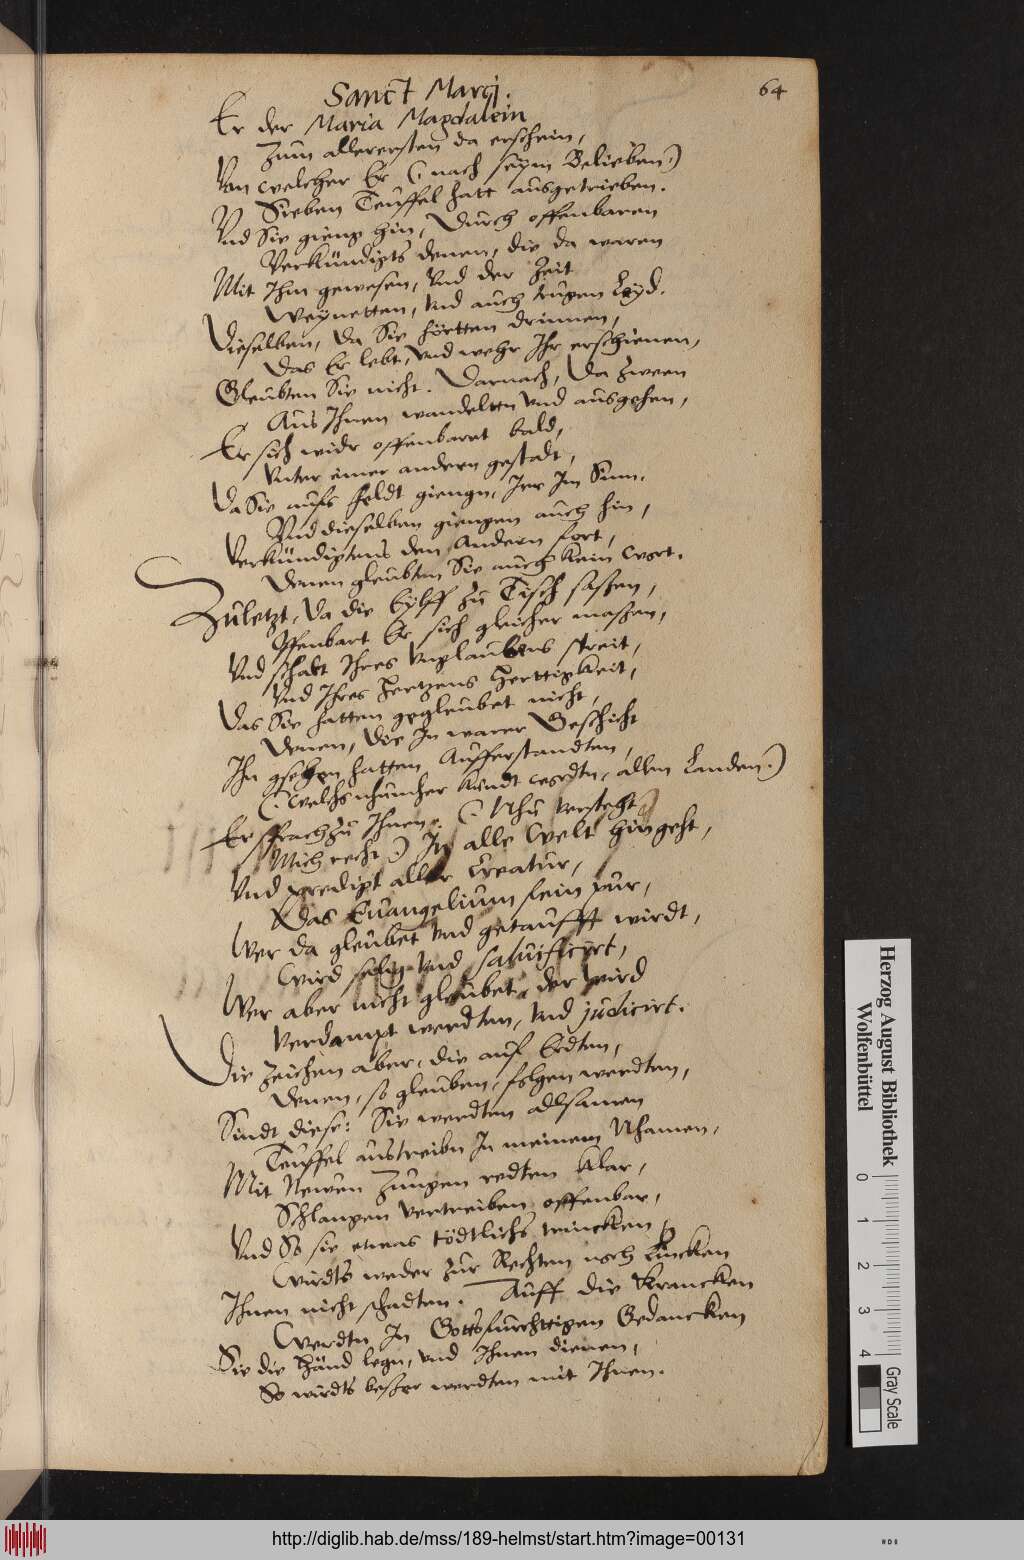 Sanct Marcj.
64
Er der Maria Magdalein
Zum allerersten da erschein,
Von welcher Er (: nach seym Belieben :)
Sieben Teuffel hatt ausgetrieben.
Vnd Sie gieng hin, Durch offenbaren
Verkündigts denen, die da waren
Mit Ihm gewesen, Vnd der Zeit
Weynetten, Vnd auch trugen Leyd.
Dieselben, da Sie hörtten drinnen,
Das Er lebt, vnd wehr Ihr erschienen,
Gleubten Sie nicht. Darnach, Da Zween
Aus Ihnen wandeltten Vnd ausgehen,
Er sich widr offenbaret bald,
Vnter einer andern gestadt,
Da Sie aufs Feldt giengn, Irr Im Sinn.
Vnd dieselben giengen auch hin,
Verkündigtens den Andern fort,
Denen gleubten Sie auch kein wort.
Zuletzt, Da die Eylff zu Tisch saßen,
Offenbart Er sich gleicher maßen,
Vnd schalt Ihres Vnglaubens streit,
Vnd Ihres Hertzens Herttigkeit,
Das Sie hatten gegleubet nicht,
Denen, die In warer Geschicht
Ihn gsehen hatten Aufferstandten,
(: Welchs nhumher kundt wordtn, allen Landen :)
Er sprach zu Ihnen: (: Nhu versteht
Mich recht :) In alle Welt hingeht,
Vnd predigt aller Creatur,
Das Euangelium fein pur,
Wer da gleubet Vnd getaufft wirdt,
Wird selig Vnd saluificirt,
Wer aber nicht gleubet, der wird
Verdampt werdten, Vnd judicirt.
Die Zeichen aber, die auf Erdten,
Denen, so gleuben, folgen werdten,
Sindt diese: Sie werdten allsamen
Teuffel austreibn In meinem Nhamen,
Mit Newen Zungen redten klar,
Schlangen vertreiben offenbar,
Vnd So sie etwas tödtlichs trincken,
Wirdts weder zur Rechten noch Lincken
Ihnen nicht schadten. Auff die Krancken
Werdtn In Gottsfurchttigen Gedancken
Sie die Händ legn, Vnd Ihnen dienen,
So wirdts beßer werdten mit Ihnen.
Herzog August Bibliothek
Wolfenbüttel
0 1 2 3 4
Gray Scale
http://diglib.hab.de/mss/189-helmst/start.htm?image=00131